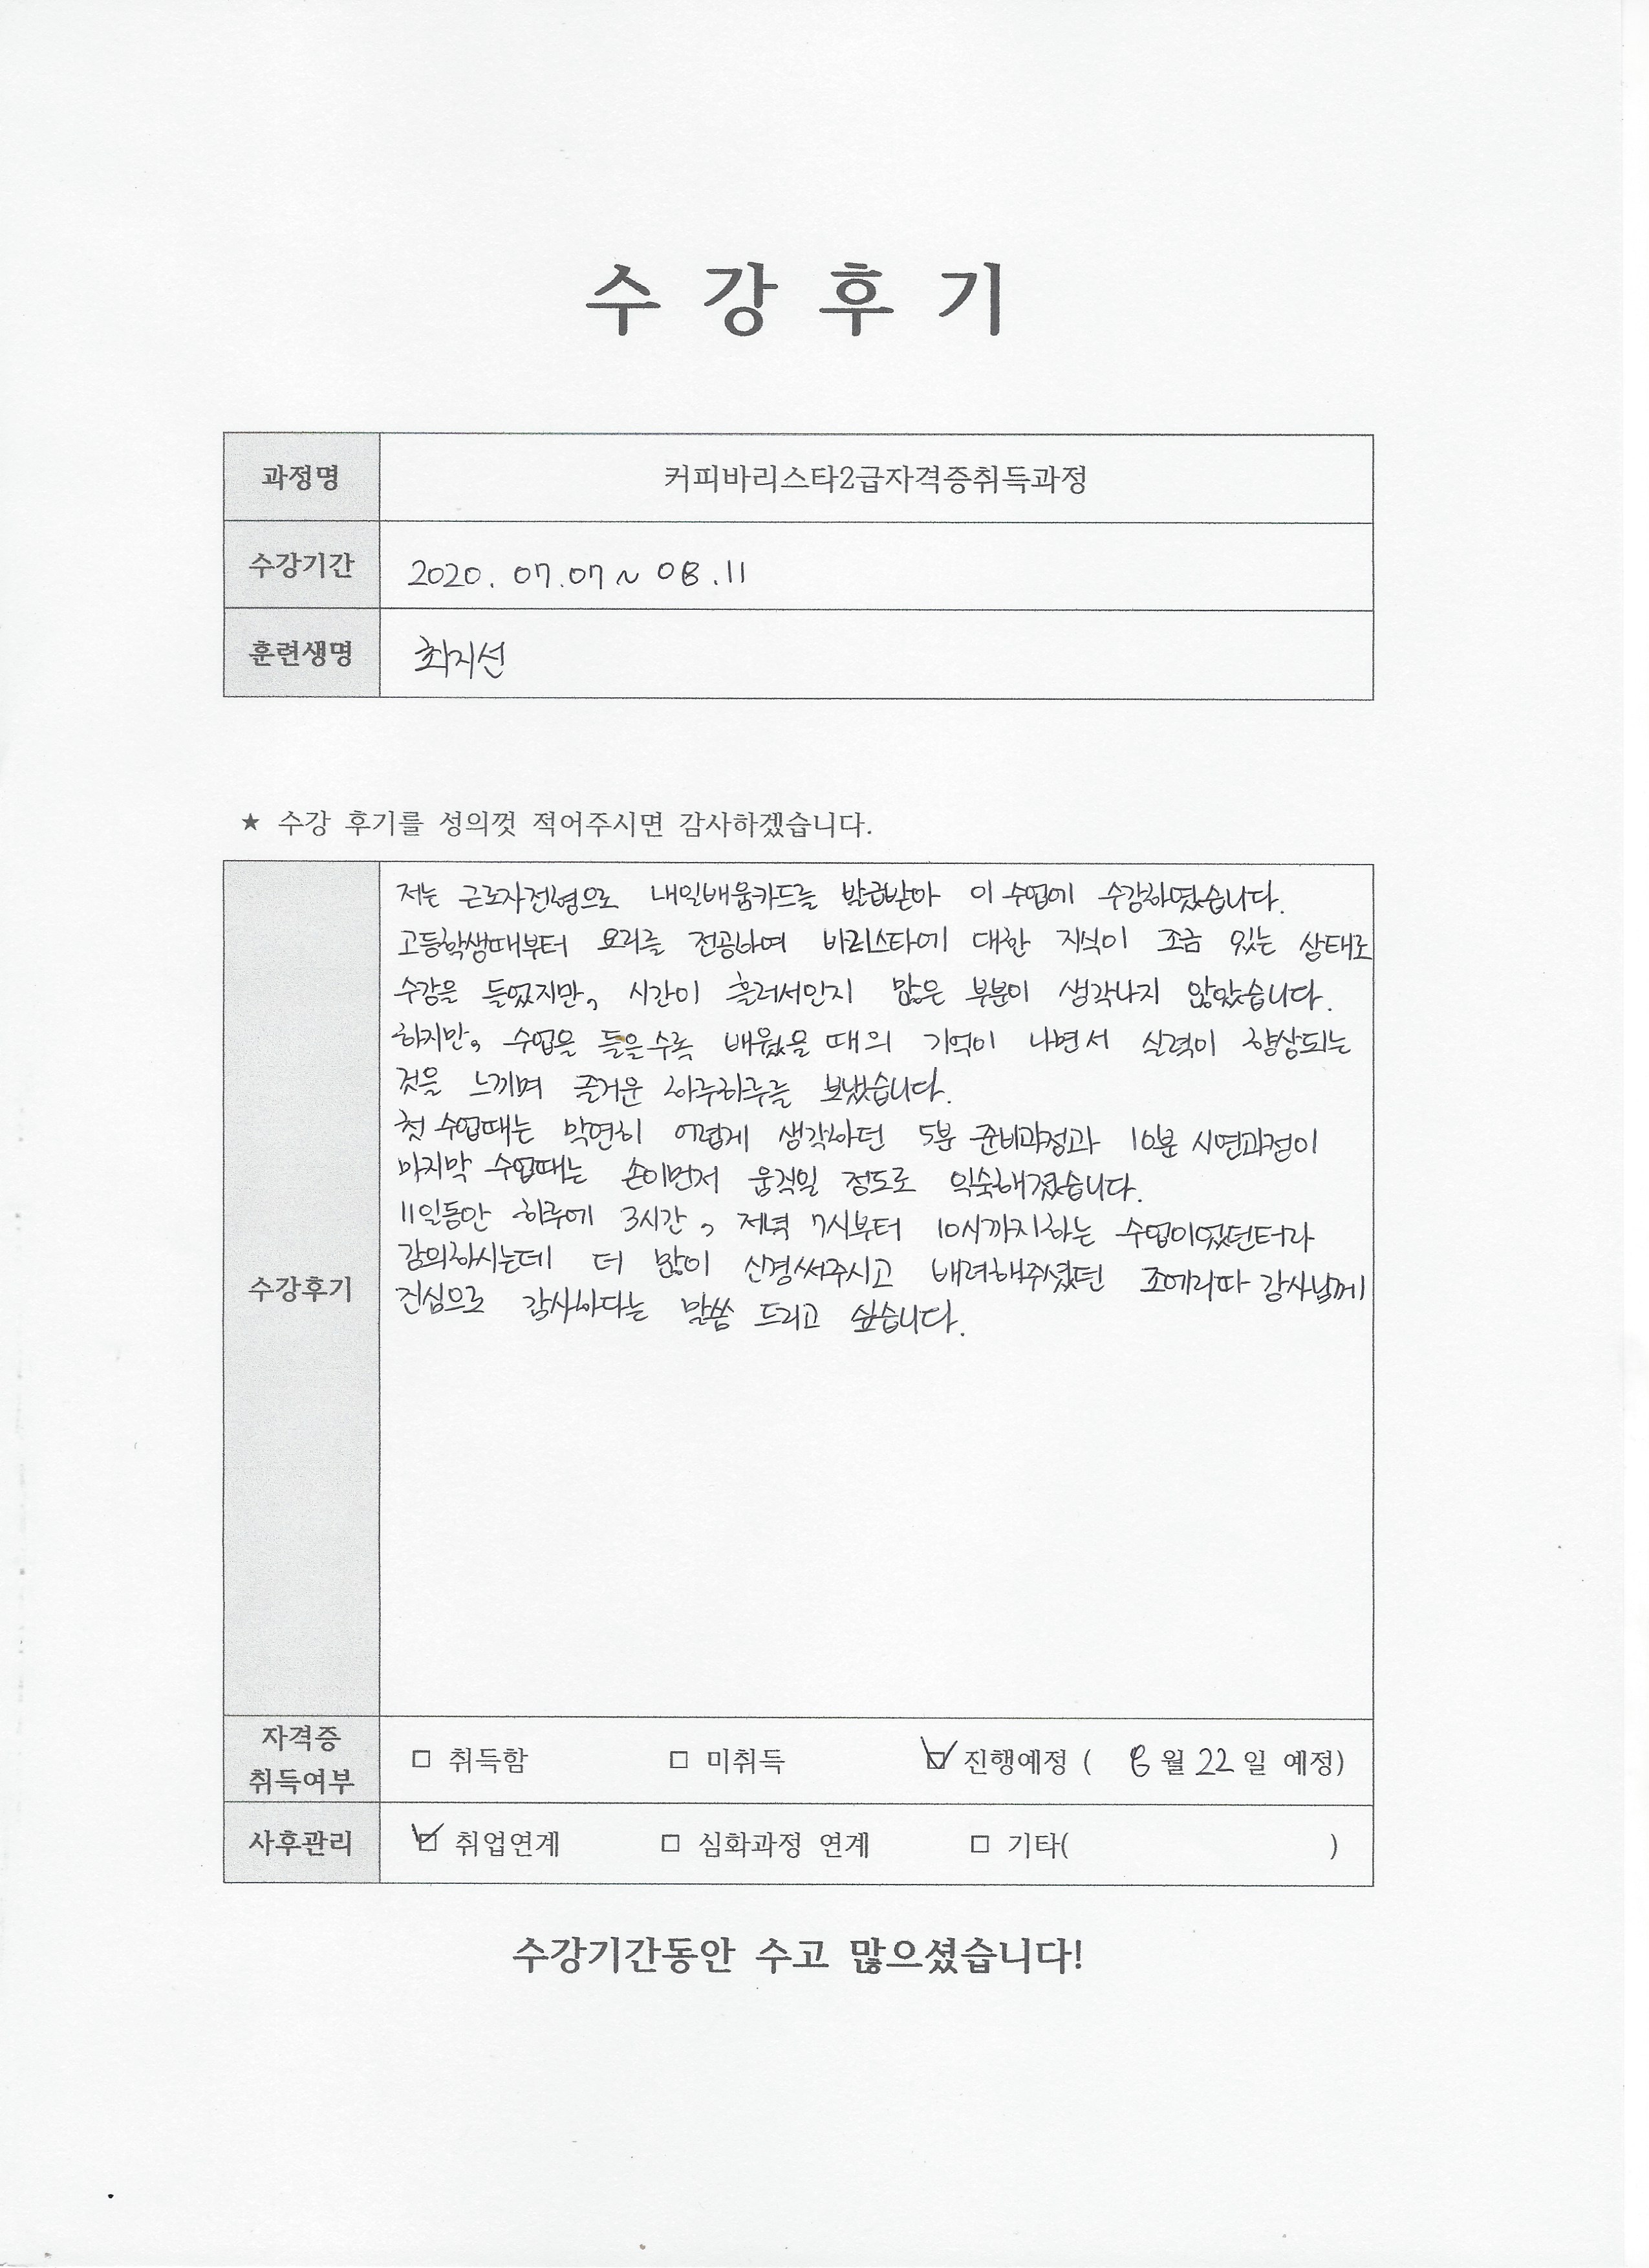 수 강 후 기
과정명 커피바리스타2급자격증취득과정
수강기간 2020. 07.07 ~ 08.11
훈련생명 최지선
★ 수강 후기를 성의껏 적어주시면 감사하겠습니다.
저는 근로자전형으로 내일배움카드를 발급받아 이 수업에 수강하였습니다.
고등학생때부터 요리를 전공하여 바리스타에 대한 지식이 조금 있는 상태로
수강을 들었지만, 시간이 흘러서인지 많은 부분이 생각나지 않았습니다.
하지만, 수업을 들을수록 배웠을 때의 기억이 나면서 실력이 향상되는
것을 느끼며 즐거운 하루하루를 보냈습니다.
첫 수업때는 막연히 어렵게 생각하던 5분 준비과정과 10분 시연과정이
마지막 수업때는 손이먼저 움직일 정도로 익숙해졌습니다.
11일동안 하루에 3시간, 저녁 7시부터 10시까지하는 수업이었던터라
강의하시는데 더 많이 신경써주시고 배려해주셨던 조에리따 강사님께
수강후기
진심으로 감사하다는 말씀 드리고 싶습니다.
자격증
취득여부 □ 취득함 □ 미취득 ☑ 진행예정 ( 8월 22일 예정)
사후관리 ☑ 취업연계 □ 심화과정 연계 □ 기타( )
수강기간동안 수고 많으셨습니다!